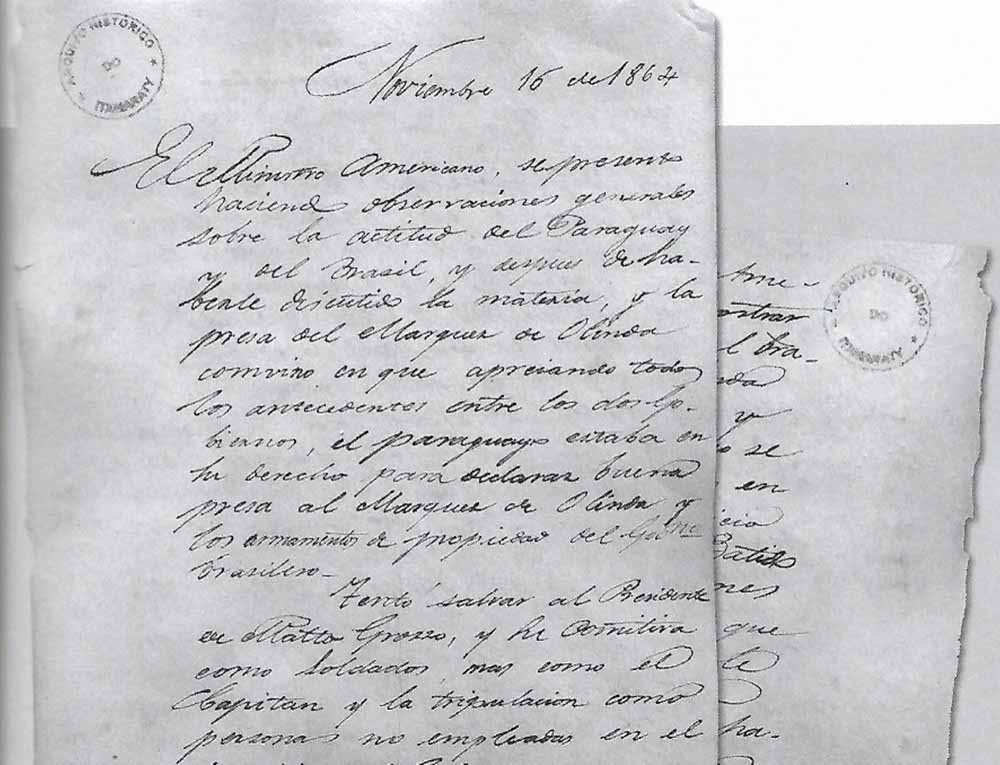 ARQUIVO HISTÓRICO DO ITAMARATY
Noviembre 16 de 1864
El Ministro Americano, se presentó
haciend observaciones generales
sobre la actitud del Paraguay
y del Brasil, y despues de ha-
berle discutido la materia, y la
presa del Marquez de Olinda
convino en que apreciando todos
los antecedentes entre los dos Go-
biernos, el paraguayo estaba en
su derecho para declarar buena
presa al Marquez de Olinda y
los armamentos de propiedad del Gobno
Brasilero.
Tentó salvar al Presidente
de Matto Grosso, y su comitiva
como soldados, mas como el
Capitan y la tripulacion como
personas no empleadas en el
ARQUIVO HISTÓRICO DO ITAMARATY
Ame-
ostrar
l bra-
y
se
en
icia
nes
que
le
ha-